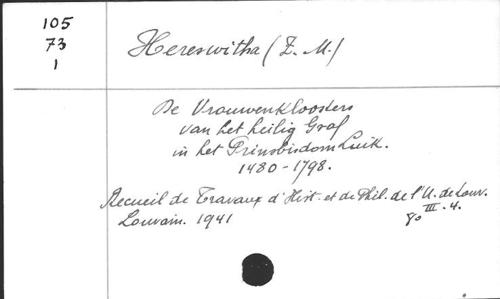 105
73
1
Hereswitha (Z. M.)
De Vrouwenkloosters
van het heilig Graf
in het Prinsbisdom Luik.
1480-1798.
Recueil de Travaux d'Hist. et de Phil. de l'U. de Louv.
Louvain. 1941
III. 4.
8o